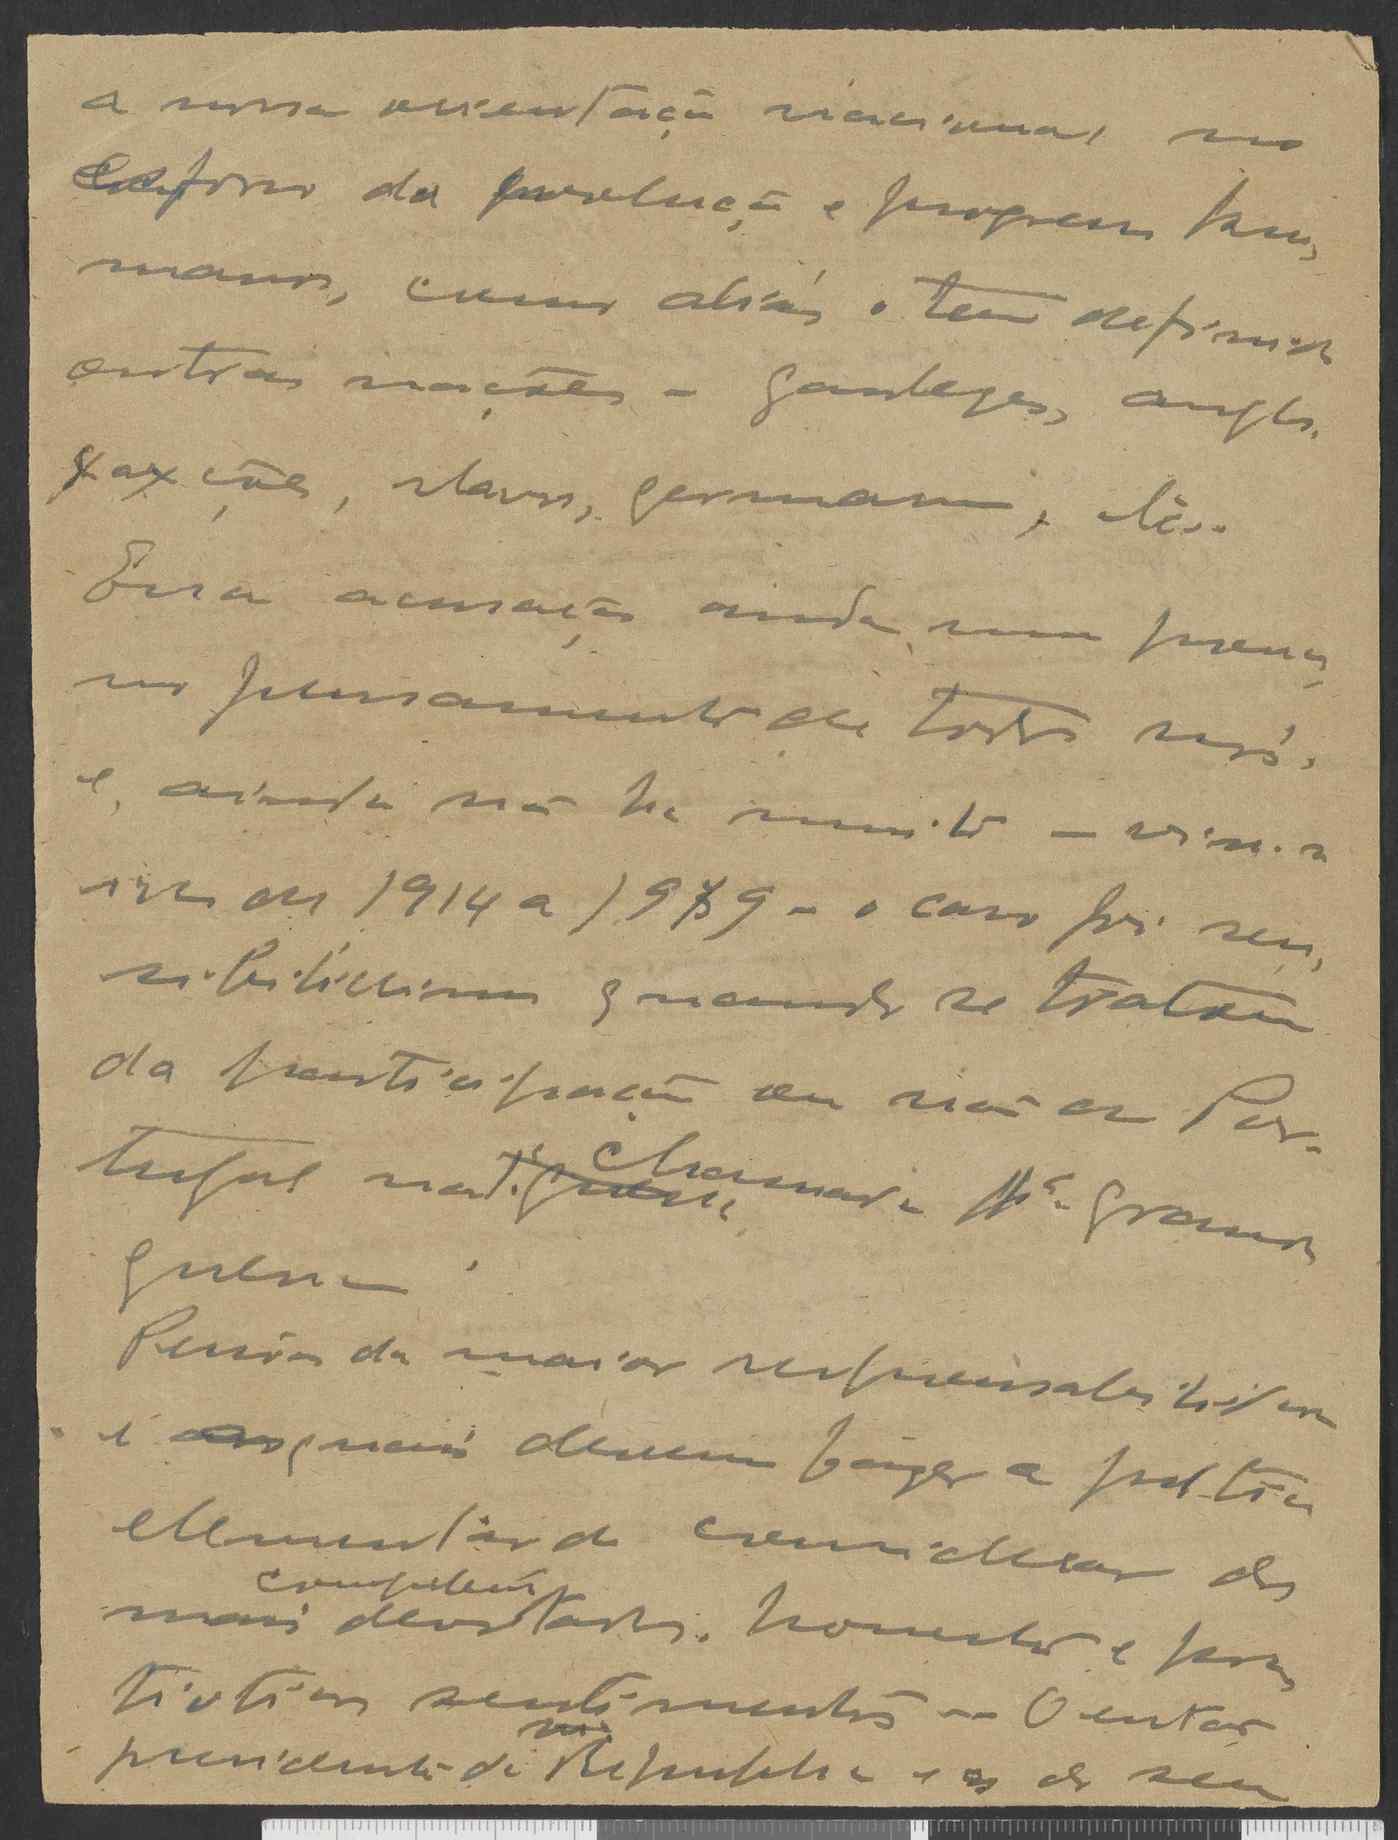 a nossa orientação nacional no
esforço da evolução e progresso hu-
manos, como aliás o tem definido
outras nações - gaulezes, anglo-
saxões, slavos, germanos, etc.
Essa acusação ainda
no pensamento de todos nós,
e, ainda não ha muito -
de 1914 a 1939 - o caso foi sen-
sibilissimo quando se tratou
da participação ou não de Por-
tugal na chamada 1ª grande
guerra.
Pessoas da maior responsabilidade
e ás quais devem fazer a justiça
elementar de considerar dos
mais competentes devotados, honestos e pa-
trioticos sentimentos - O então
presidente da Republica e os do seu